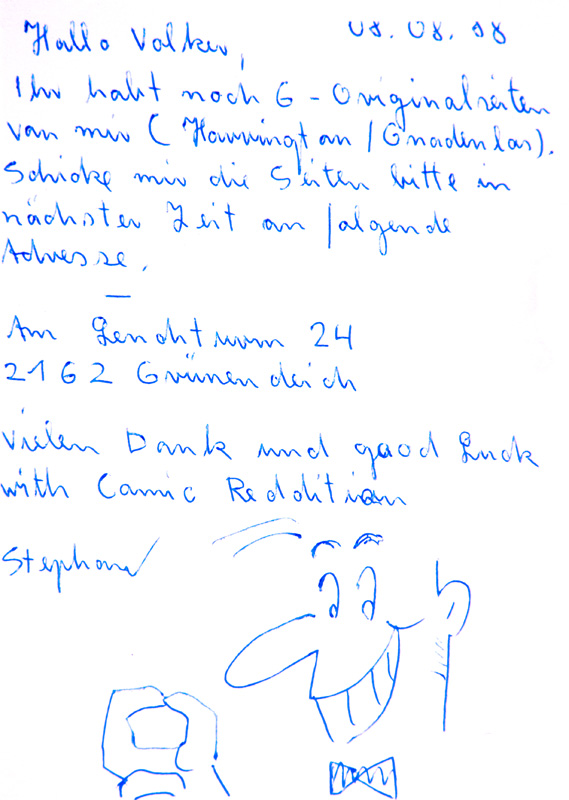 Hallo Volker,
08.08.98
Ihr habt noch 6-Originalseiten
von mir (Harrington/Gnadenlos).
Schicke mir die Seiten bitte in
nächster Zeit an folgende
Adresse,
–
Am Leuchtturm 24
2162 Grünendeich
Vielen Dank und good Luck
with Comic Reddition
Stephan